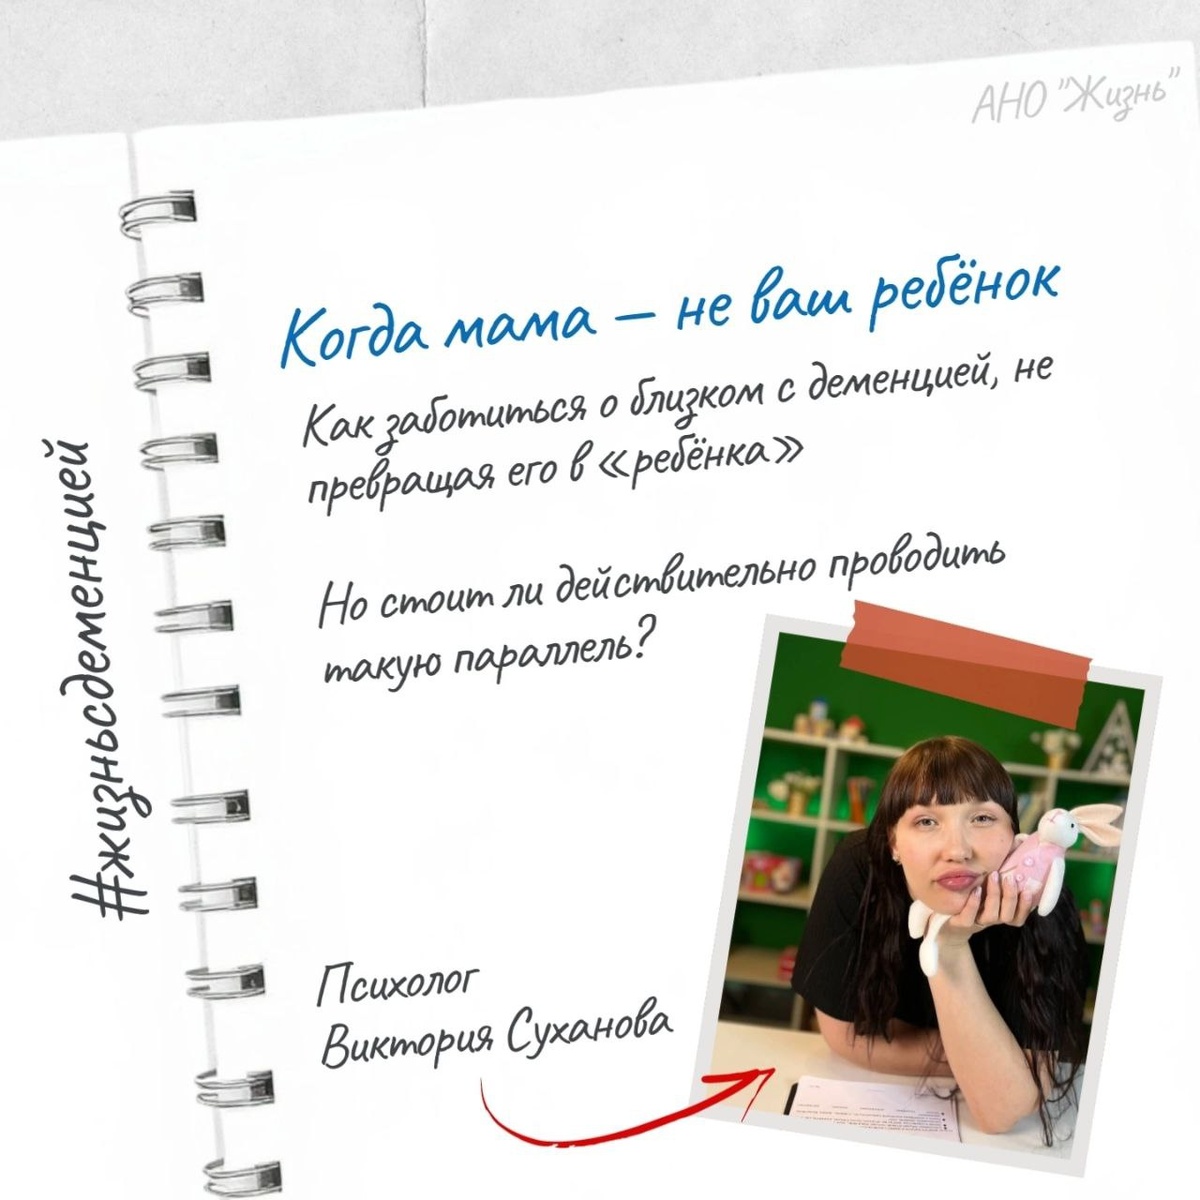 АНО "Жизнь"
Когда мама — не ваш ребёнок
Как заботиться о близком с деменцией, не
превращая его в «ребёнка»
Но стоит ли действительно проводить
такую параллель?
#жизньсдеменцией
Психолог
Виктория Суханова